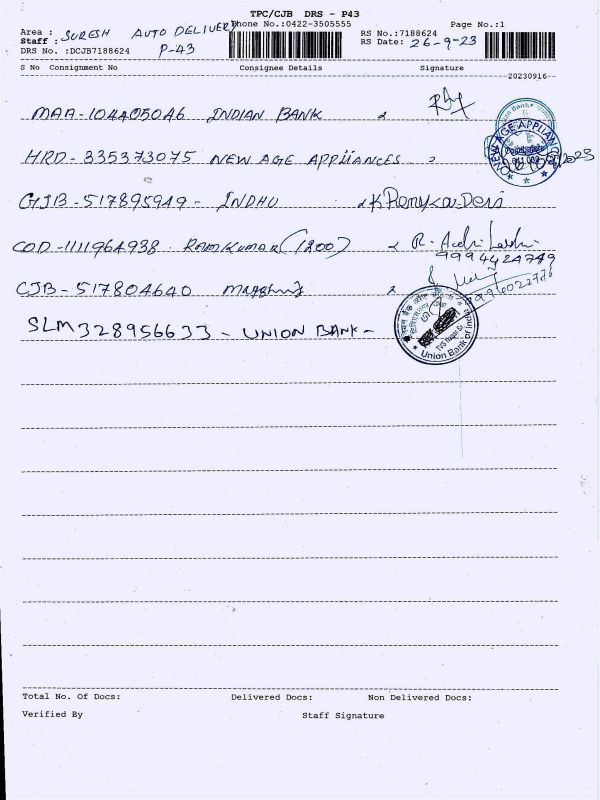 TPC/CJB DRS - P43
Area : SURESH AUTO DELIVERY Phone No.:0422-3505555 Page No.:1
Staff : RS No.:7188624
DRS No. :DCJB7188624 P-43 RS Date: 26-9-23
S No Consignment No Consignee Details Signature
20230916
MAA-104405046 INDIAN BANK
HRD-335373075 NEW AGE APPLIANCES
NEW AGE APPLIAN
GJB-517895949- INDHU K Renuka Devi
COD-1111964938- RamKumar (1200)
9994424749
CJB-517804640
SLM328956633- UNION BANK-
TVS Nagar
Union Bank of India
Total No. Of Docs: Delivered Docs: Non Delivered Docs:
Verified By Staff Signature